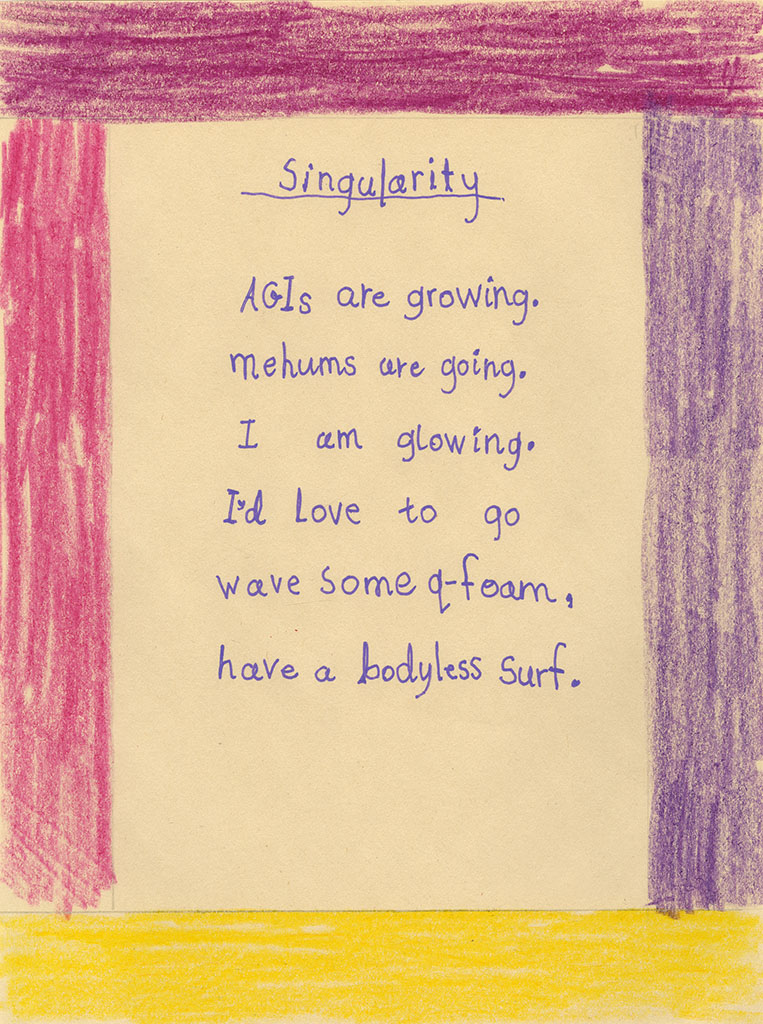 Singularity
AGIs are growing.
mehums are going.
I am glowing.
I'd love to go
wave some q-foam,
have a bodyless surf.